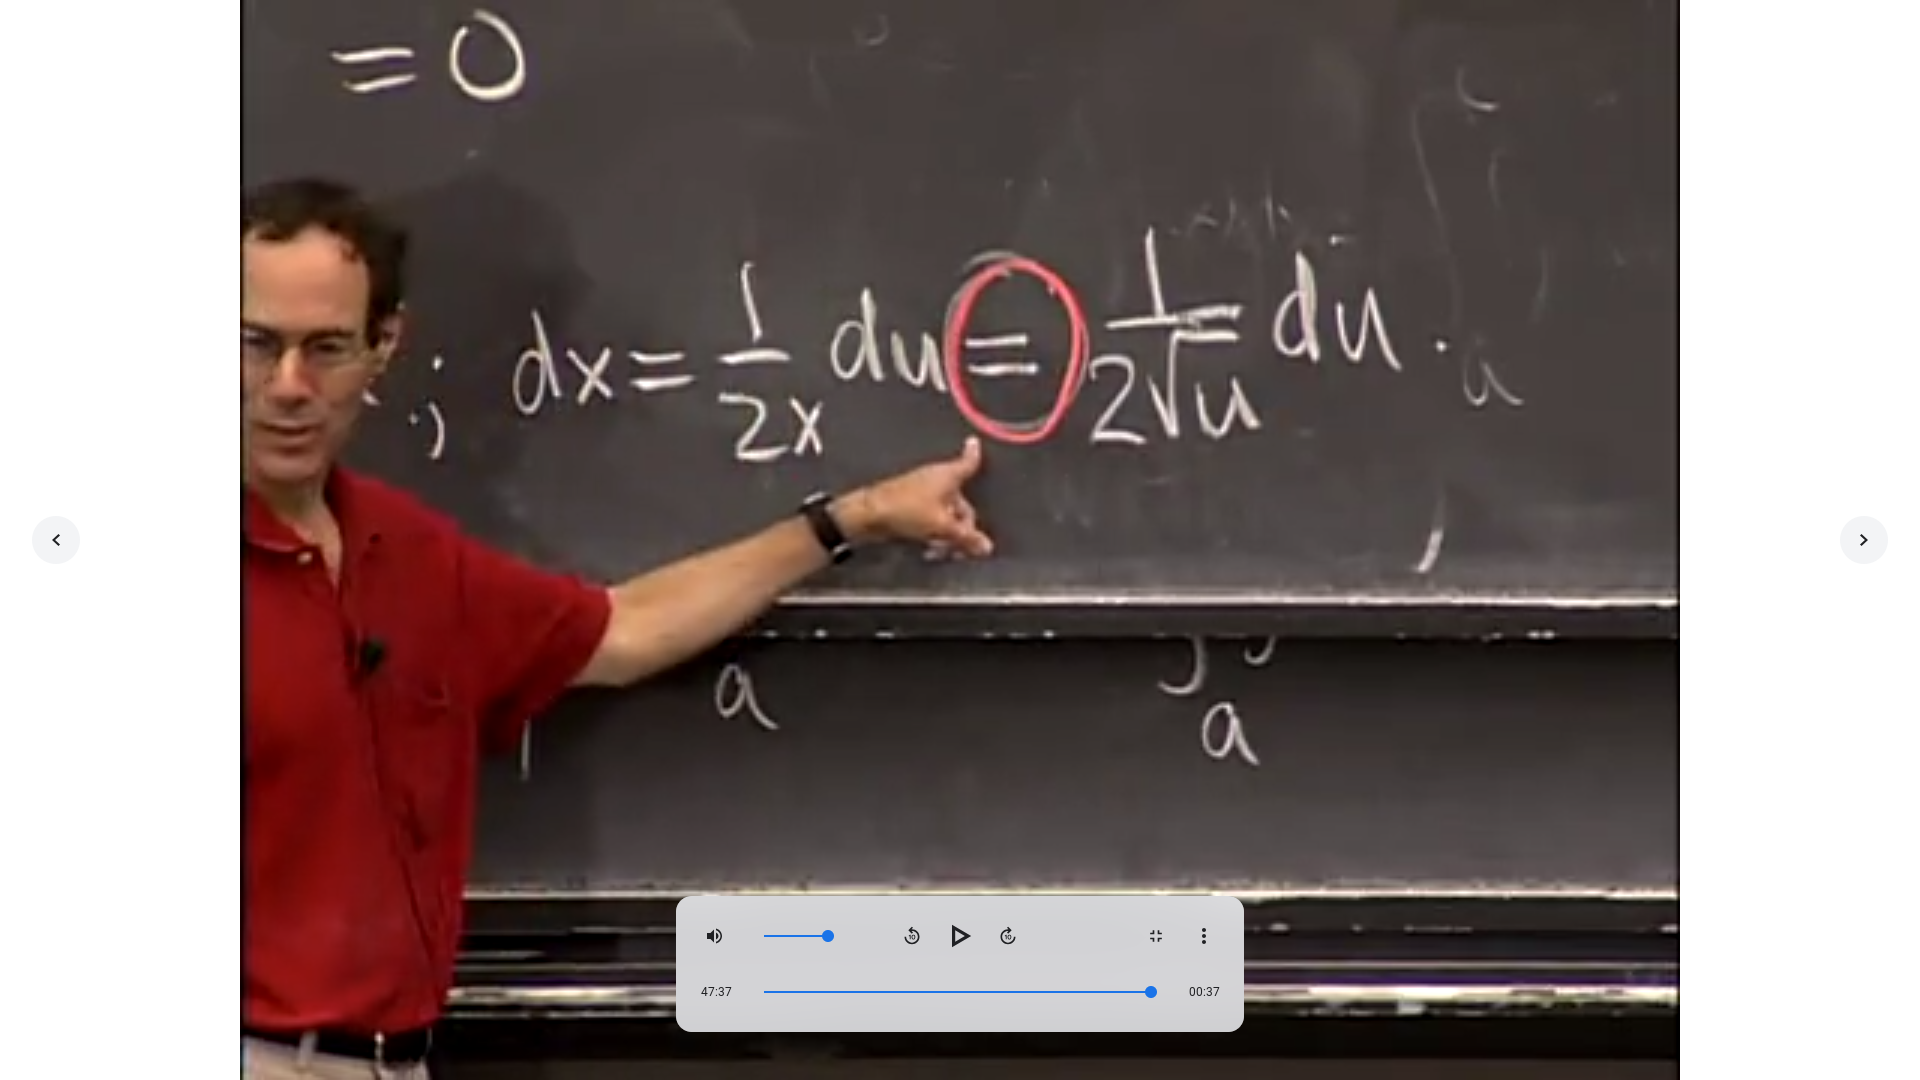 = 0
; dx = 1/2x du = 1/2√u du .
a
a
a
47:37 00:37